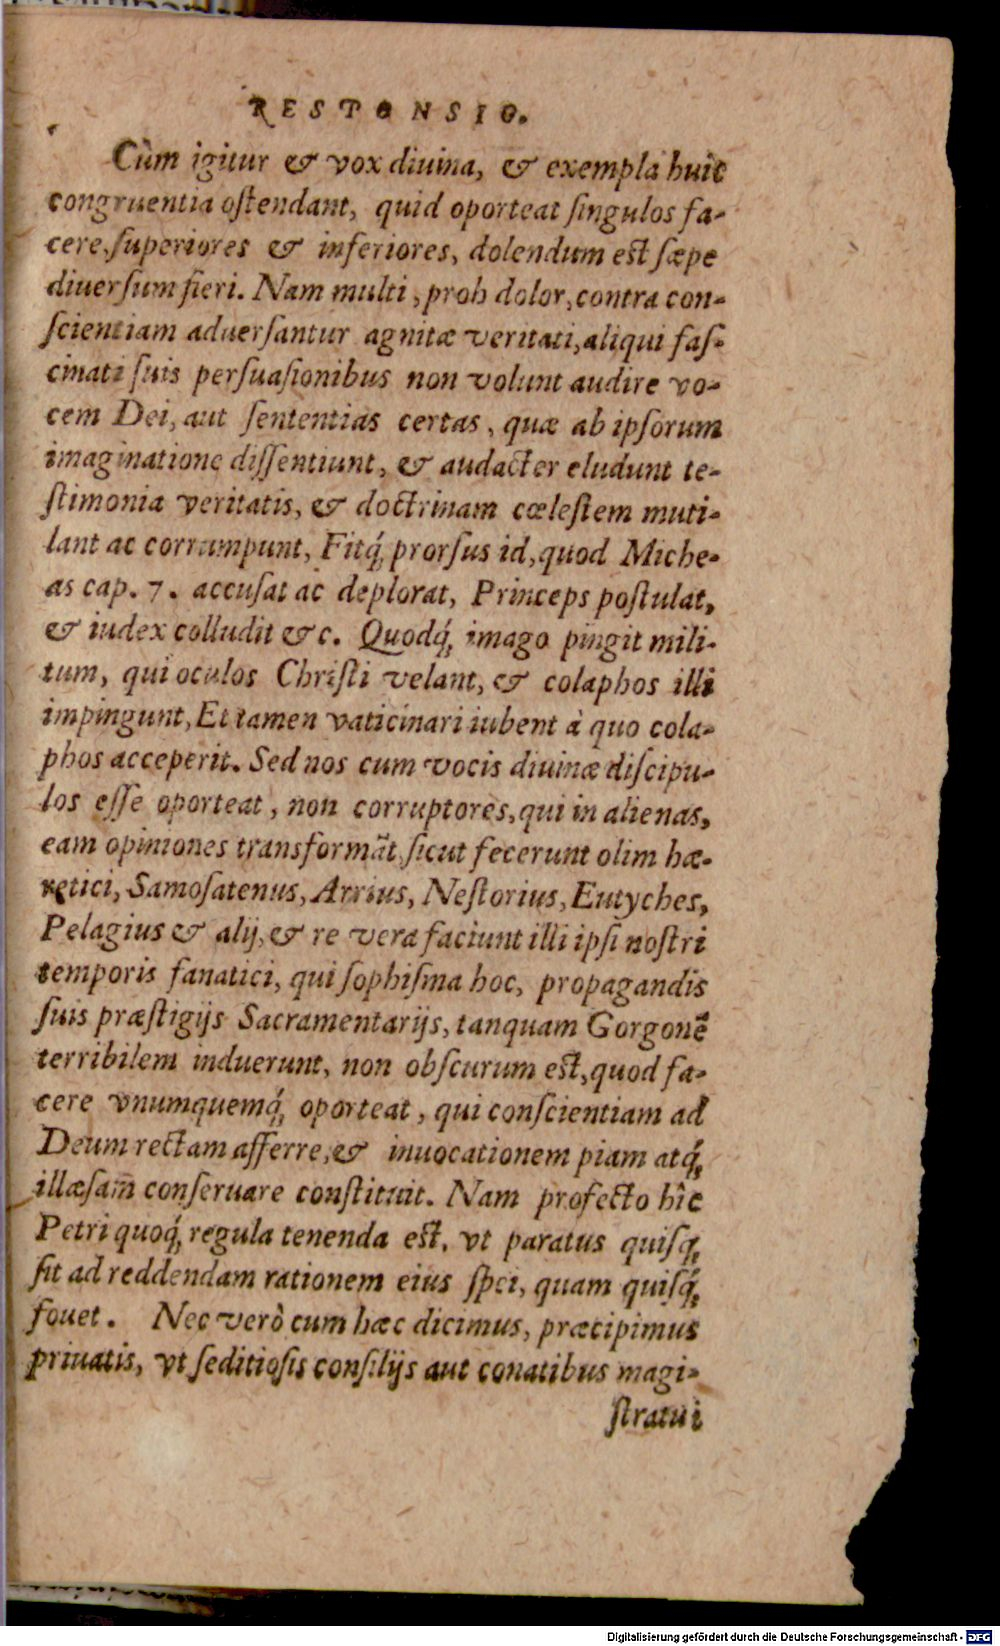 RESPONSIO.
Cùm igitur & vox diuina, & exempla huic
congruentia ostendant, quid oporteat singulos fa-
cere, superiores & inferiores, dolendum est sæpe
diuersum fieri. Nam multi, proh dolor, contra con-
scientiam aduersantur agnitæ veritati, aliqui fas-
cinati suis persuasionibus non volunt audire vo-
cem Dei, aut sententias certas, quæ ab ipsorum
imaginatione dissentiunt, & audacter eludunt te-
stimonia veritatis, & doctrinam cœlestem muti-
lant ac corrumpunt, Fitq́; prorsus id, quod Miche-
as cap. 7. accusat ac deplorat, Princeps postulat,
& iudex colludit &c. Quodq́; imago pingit mili-
tum, qui oculos Christi velant, & colaphos illi
impingunt, Et tamen vaticinari iubent à quo cola-
phos acceperit. Sed nos cum vocis diuinæ discipu-
los esse oporteat, non corruptores, qui in alienas,
eam opiniones transformāt, sicut fecerunt olim hæ-
retici, Samosatenus, Arrius, Nestorius, Eutyches,
Pelagius & alij, & re vera faciunt illi ipsi nostri
temporis fanatici, qui sophisma hoc, propagandis
suis præstigijs Sacramentarijs, tanquam Gorgonē
terribilem induerunt, non obscurum est, quod fa-
cere vnumquemq́; oporteat, qui conscientiam ad
Deum rectam afferre, & inuocationem piam atq́;
illæsam conseruare constituit. Nam profecto hîc
Petri quoq́; regula tenenda est, vt paratus quisq;
sit ad reddendam rationem eius spei, quam quisq́;
fouet. Nec verò cum hæc dicimus, præcipimus
priuatis, vt seditiosis consilijs aut conatibus magi-
stratui
Digitalisierung gefördert durch die Deutsche Forschungsgemeinschaft - DFG